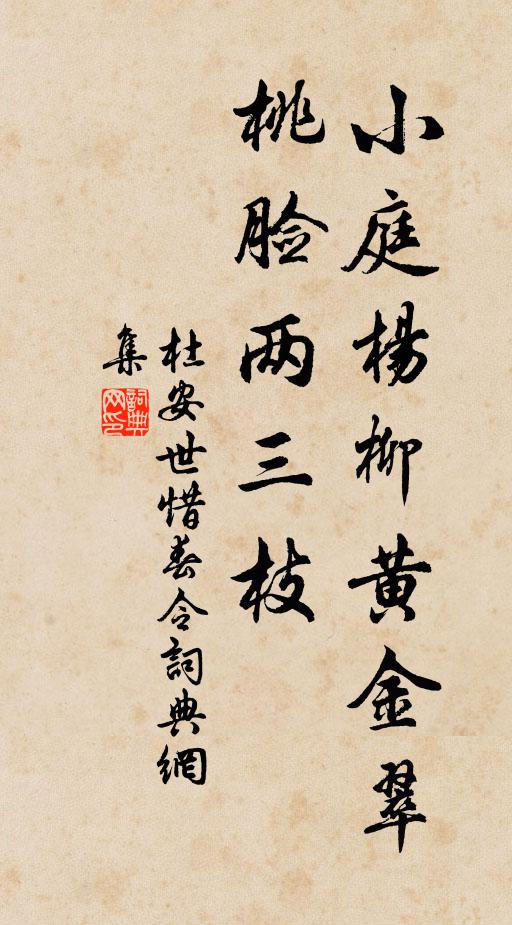 小庭楊柳黄金翠
桃脸两三枝
杜安世惜春令詞典網
集
詞典
网印